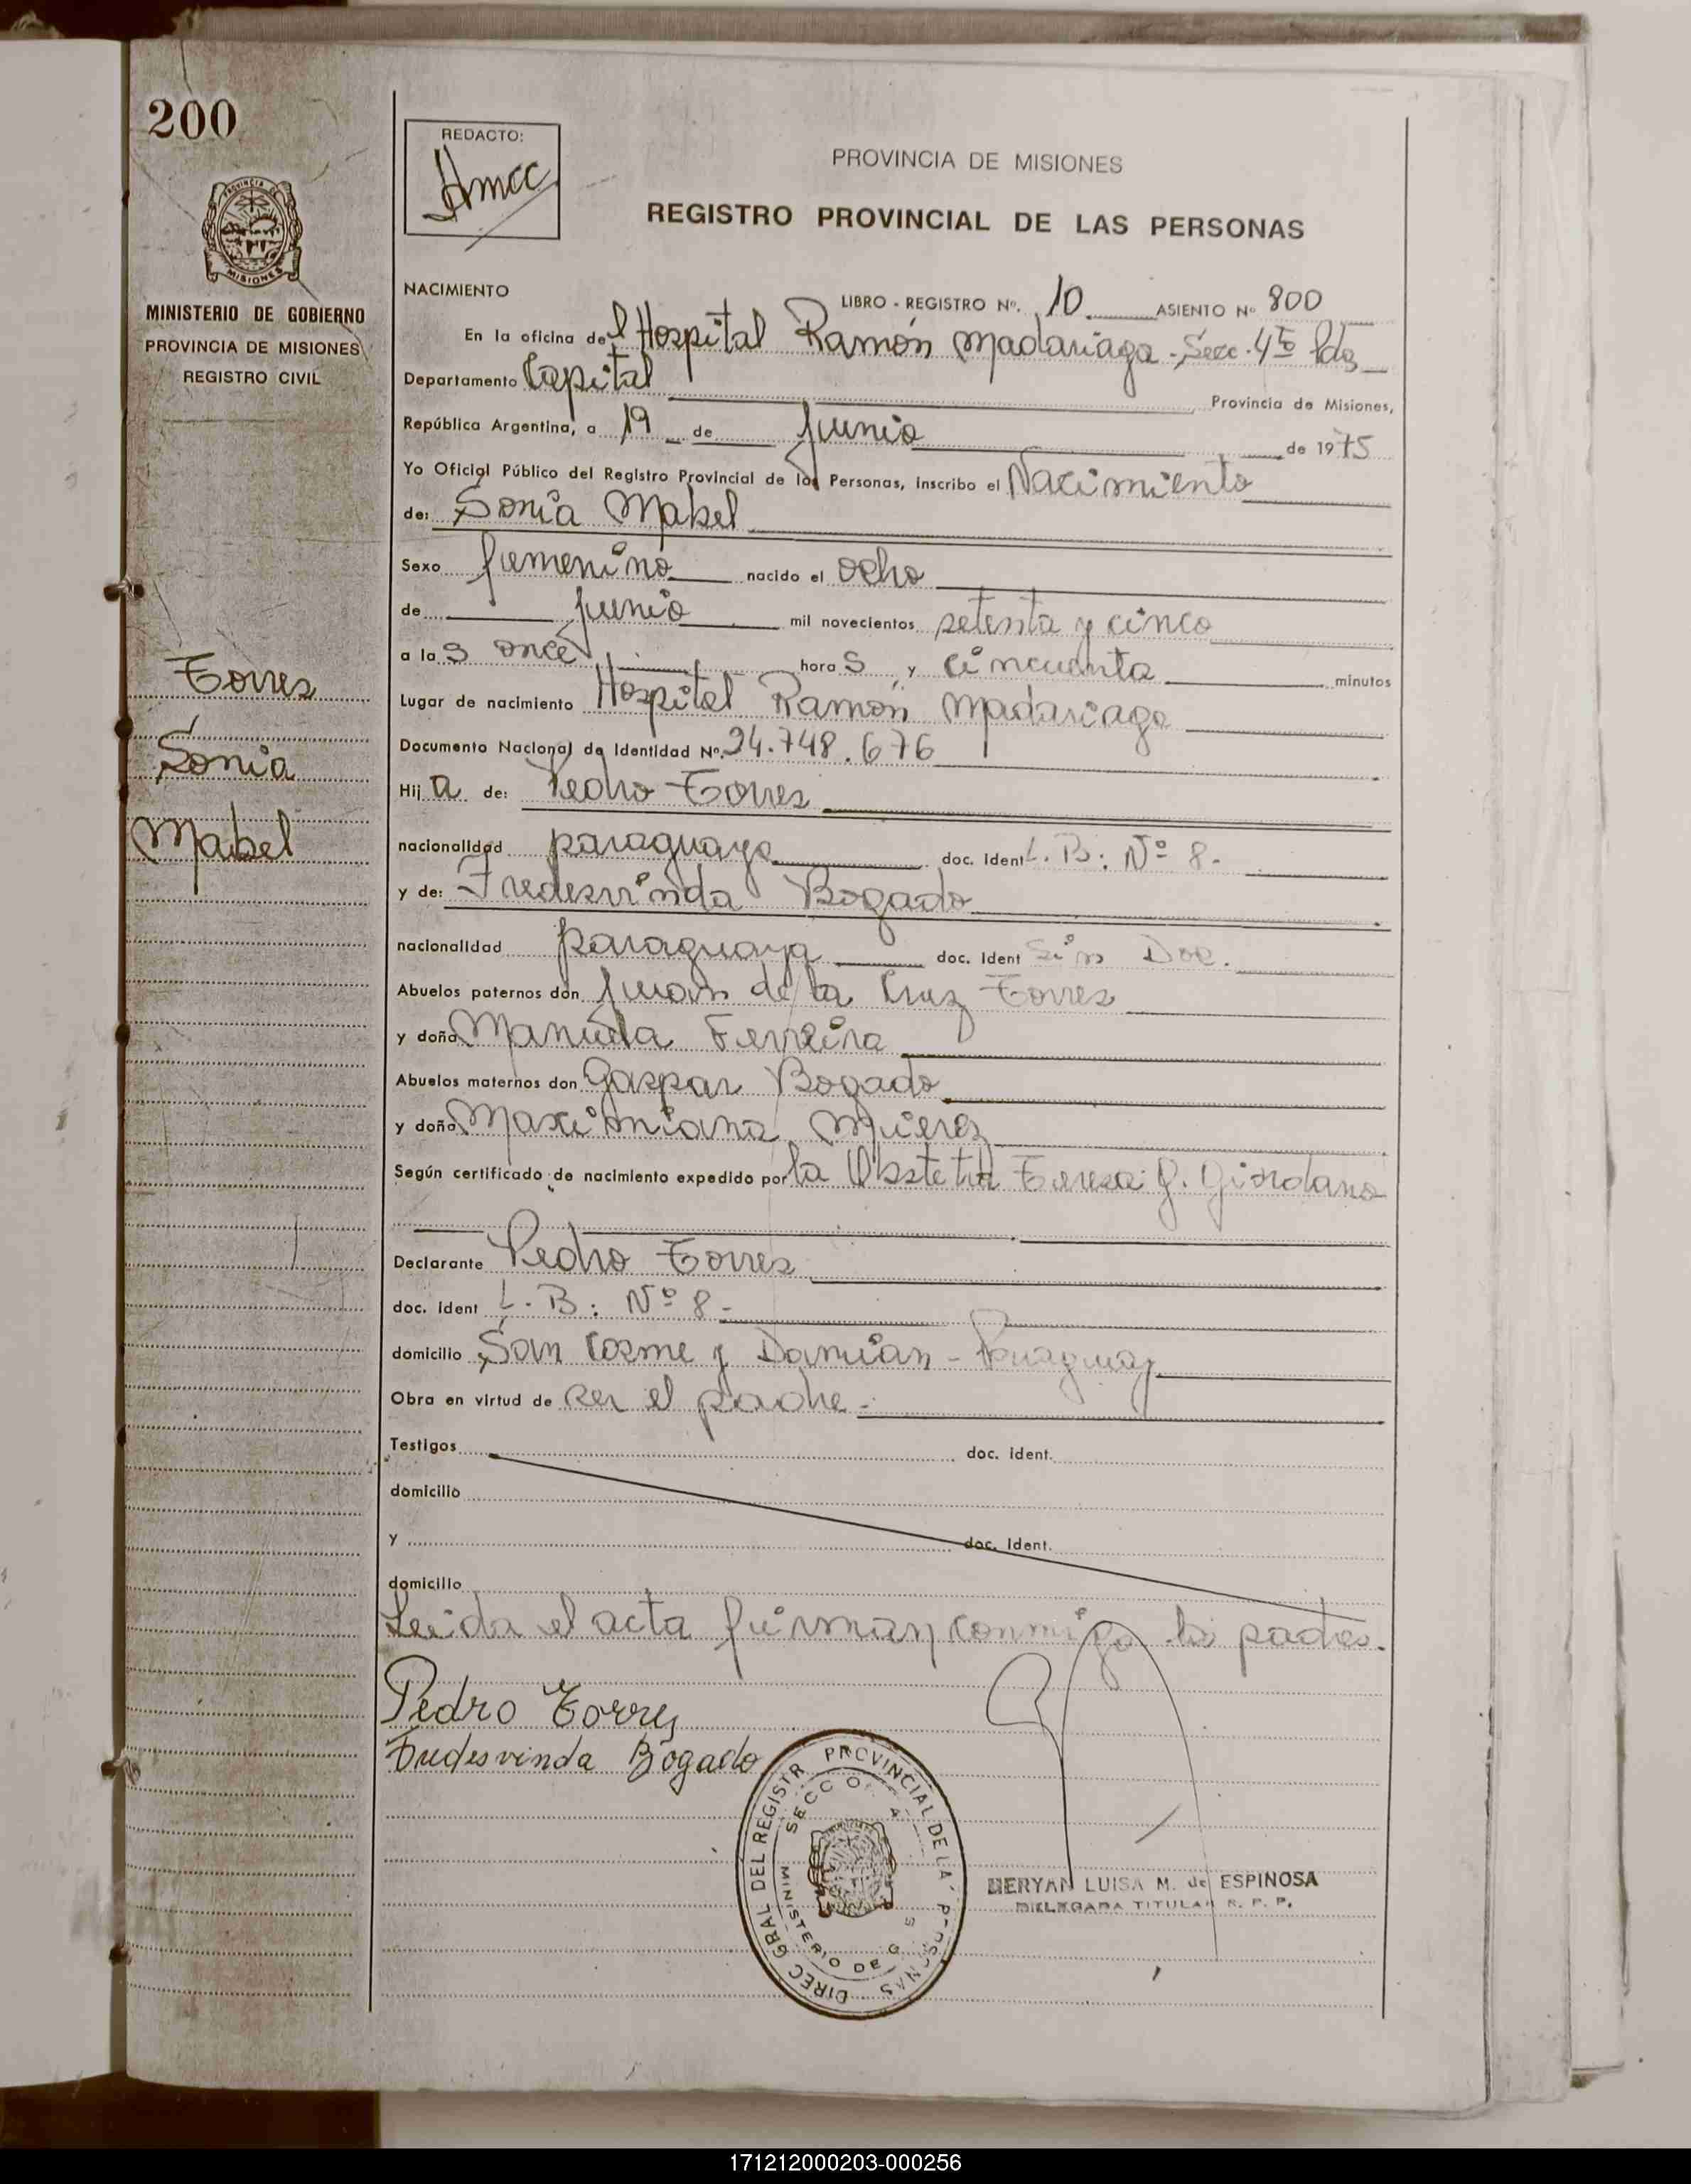 200
REDACTO:
Hmcc
PROVINCIA DE MISIONES
REGISTRO PROVINCIAL DE LAS PERSONAS
PROVINCIA DE MISIONES
MINISTERIO DE GOBIERNO
PROVINCIA DE MISIONES
REGISTRO CIVIL
Torres
Sonia
Mabel
NACIMIENTO LIBRO - REGISTRO Nº. 10 ASIENTO Nº 800
En la oficina del Hospital Ramón Madariaga - Secc. 4ta Pdas
Departamento Capital Provincia de Misiones,
República Argentina, a 19 de Junio de 1975
Yo Oficial Público del Registro Provincial de las Personas, inscribo el Nacimiento
de: Sonia Mabel
Sexo femenino nacido el ocho
de junio mil novecientos setenta y cinco
a las once horas y cincuenta minutos
Lugar de nacimiento Hospital Ramón Madariaga
Documento Nacional de Identidad Nº. 24.748.676
Hija de: Pedro Torres
nacionalidad paraguaya doc. Ident L. B: Nº 8-
y de: Fredesvinda Bogado
nacionalidad paraguaya doc. Ident Sin Doc.
Abuelos paternos don Juan de la Cruz Torres
y doña Manuela Ferreira
Abuelos maternos don Gaspar Bogado
y doña Maximiana
Según certificado de nacimiento expedido por la Obstetra Teresa Q. Giordano
Declarante Pedro Torres
doc. ident L. B: Nº 8-
domicilio San Cosme y Damian - Paraguay
Obra en virtud de ser el padre -
Testigos doc. ident.
domicilio
y doc. Ident.
domicilio
Leida el acta firman conmigo los padres.
Pedro Torres
Fredesvinda Bogado
DIREC GRAL DEL REGISTR PROVINCIAL DE LA PERSONAS
SECC
MINISTERIO DE G
MERYAN LUISA M. de ESPINOSA
DELEGADA TITULAR R. P. P.
171212000203-000256